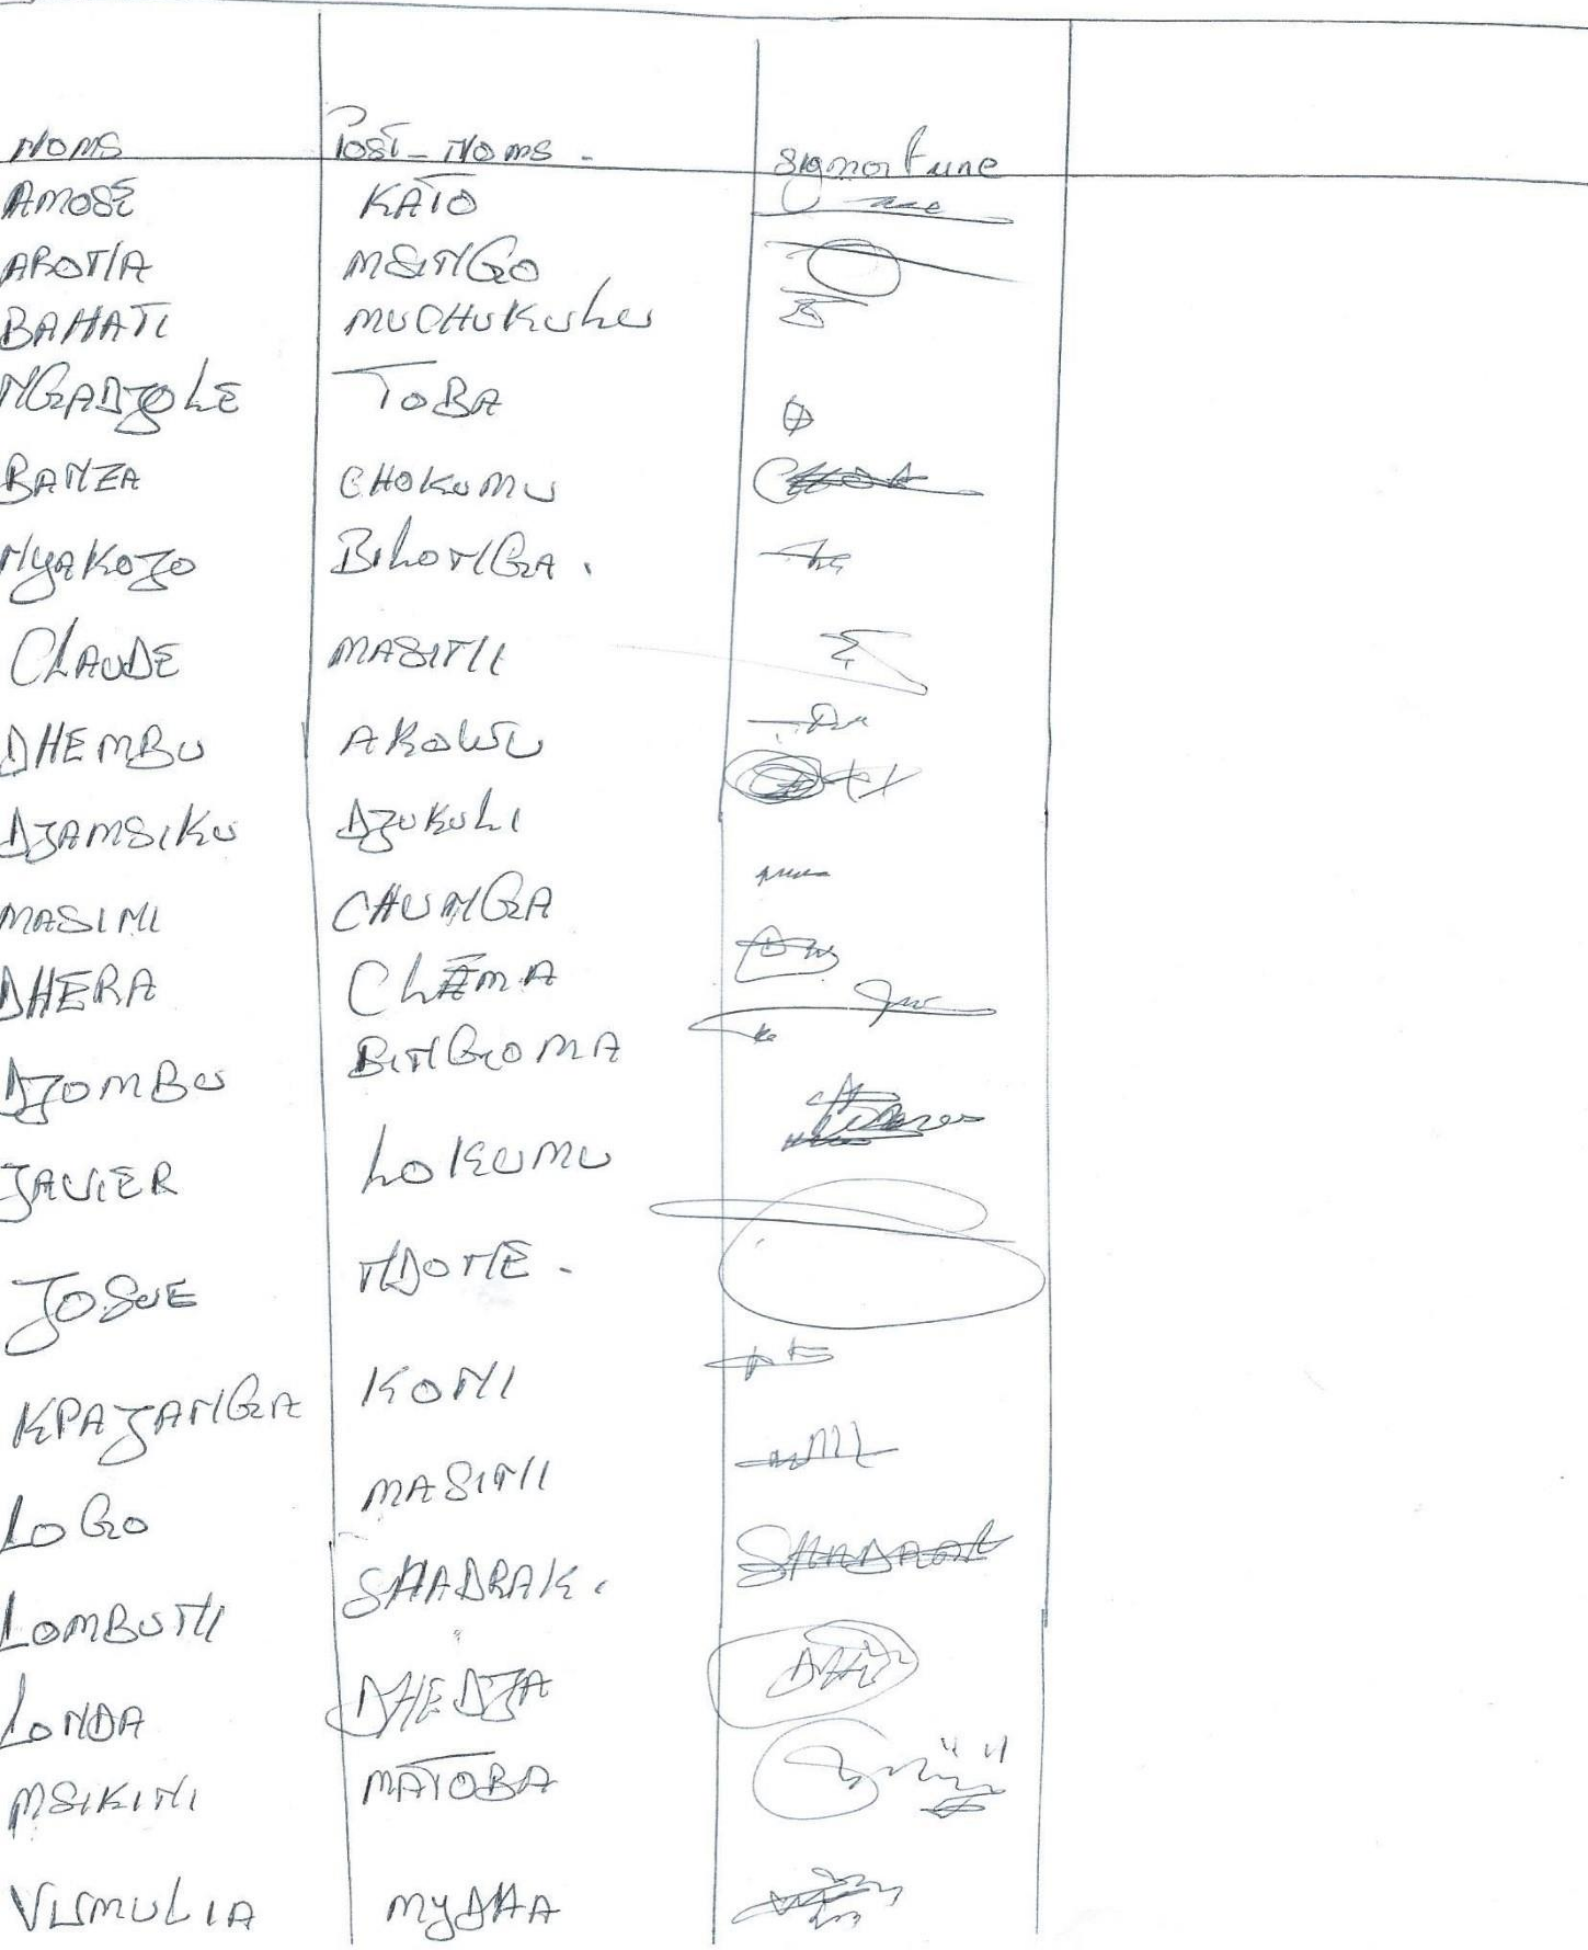 NOMS Post-Noms. Signature
AMOSE KATO
AROTIA MSINGO
BAHATI MUCHUKULU
NGADJOLE TOBA
BANZA CHOKUMU
NYAKOZO BILONGA.
CLAUDE MASINI
DHEMBU
DJAMSIKU DJUKULI
MASINI CHUNGA
DHERA CLEMA
DJOMBU BINGOMA
JAVIER LOKUMU
JOSUE NDONE.
KPAJANGA KONI
LOGO MASINI
LOMBUNI SHADRAK. SHADRAK
LONDA DHEDJA
MSIKINI MATOBA
VUMULIA MYDHA